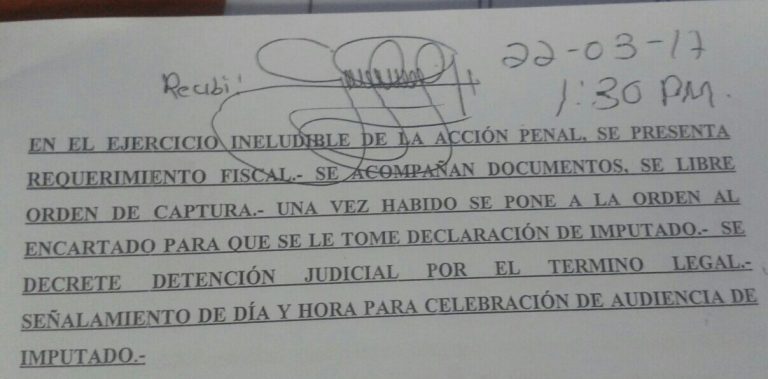 Recibí:
22-03-17
1:30 PM.
EN EL EJERCICIO INELUDIBLE DE LA ACCIÓN PENAL, SE PRESENTA
REQUERIMIENTO FISCAL.- SE ACOMPAÑAN DOCUMENTOS, SE LIBRE
ORDEN DE CAPTURA.- UNA VEZ HABIDO SE PONE A LA ORDEN AL
ENCARTADO PARA QUE SE LE TOME DECLARACIÓN DE IMPUTADO.- SE
DECRETE DETENCIÓN JUDICIAL POR EL TERMINO LEGAL.-
SEÑALAMIENTO DE DÍA Y HORA PARA CELEBRACIÓN DE AUDIENCIA DE
IMPUTADO.-